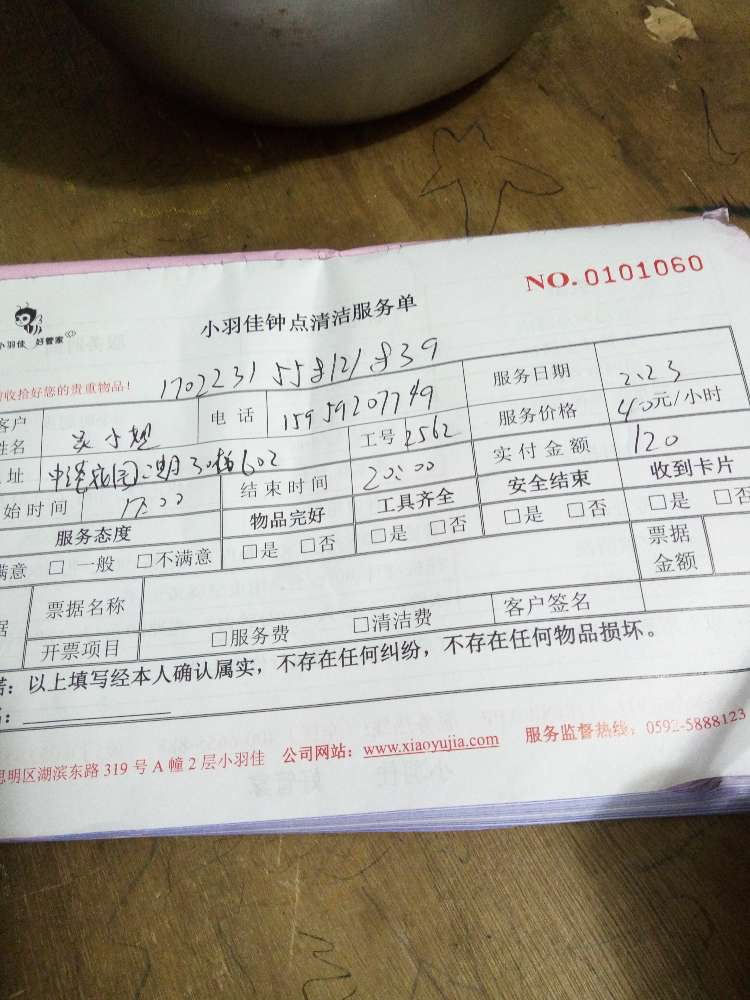 NO.0101060
小羽佳钟点清洁服务单
小羽佳 好管家
收拾好您的贵重物品!
客户姓名 小姐 电话 15959207749 服务日期 2.23
工号 2562 服务价格 40元/小时
址 花园二期30梯602 结束时间 20:00 实付金额 120
始时间 17:00 物品完好 工具齐全 安全结束 收到卡片
服务态度 □是 □否 □是 □否 □是 □否 □是 □否
满意 □一般 □不满意 票据金额
据 票据名称
开票项目 □服务费 □清洁费 客户签名
诺:以上填写经本人确认属实,不存在任何纠纷,不存在任何物品损坏。
思明区湖滨东路319号A幢2层小羽佳 公司网站:www.xiaoyujia.com 服务监督热线:0592-5888123